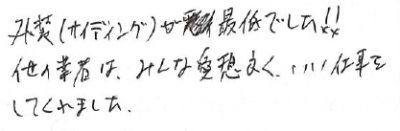 外装(サイディング)が最低でした!!
他の業者は、みんな愛想良く、いい仕事を
してくれました。